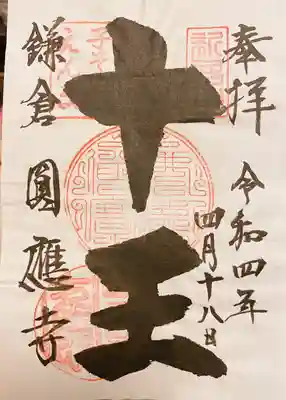 奉拝
令和四年
四月十八日
十王
鎌倉
圓應寺